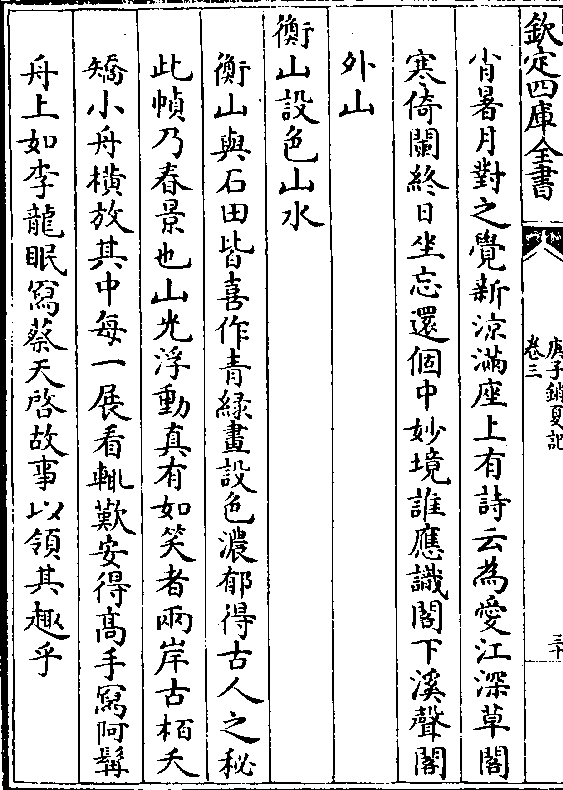 欽定四庫全書
庚子銷夏記
卷三
三十
肖暑月對之覺新涼滿座上有詩云為愛江深草閣
寒倚闌終日坐忘還個中妙境誰應識閣下溪聲閣
外山
衡山設色山水
衡山與石田皆喜作青緑畫設色濃郁得古人之秘
此幀乃春景也山光浮動真有如笑者兩岸古栢夭
矯小舟橫放其中每一展看輒歎安得髙手寫阿髯
舟上如李龍眠寫蔡天啓故事以領其趣乎